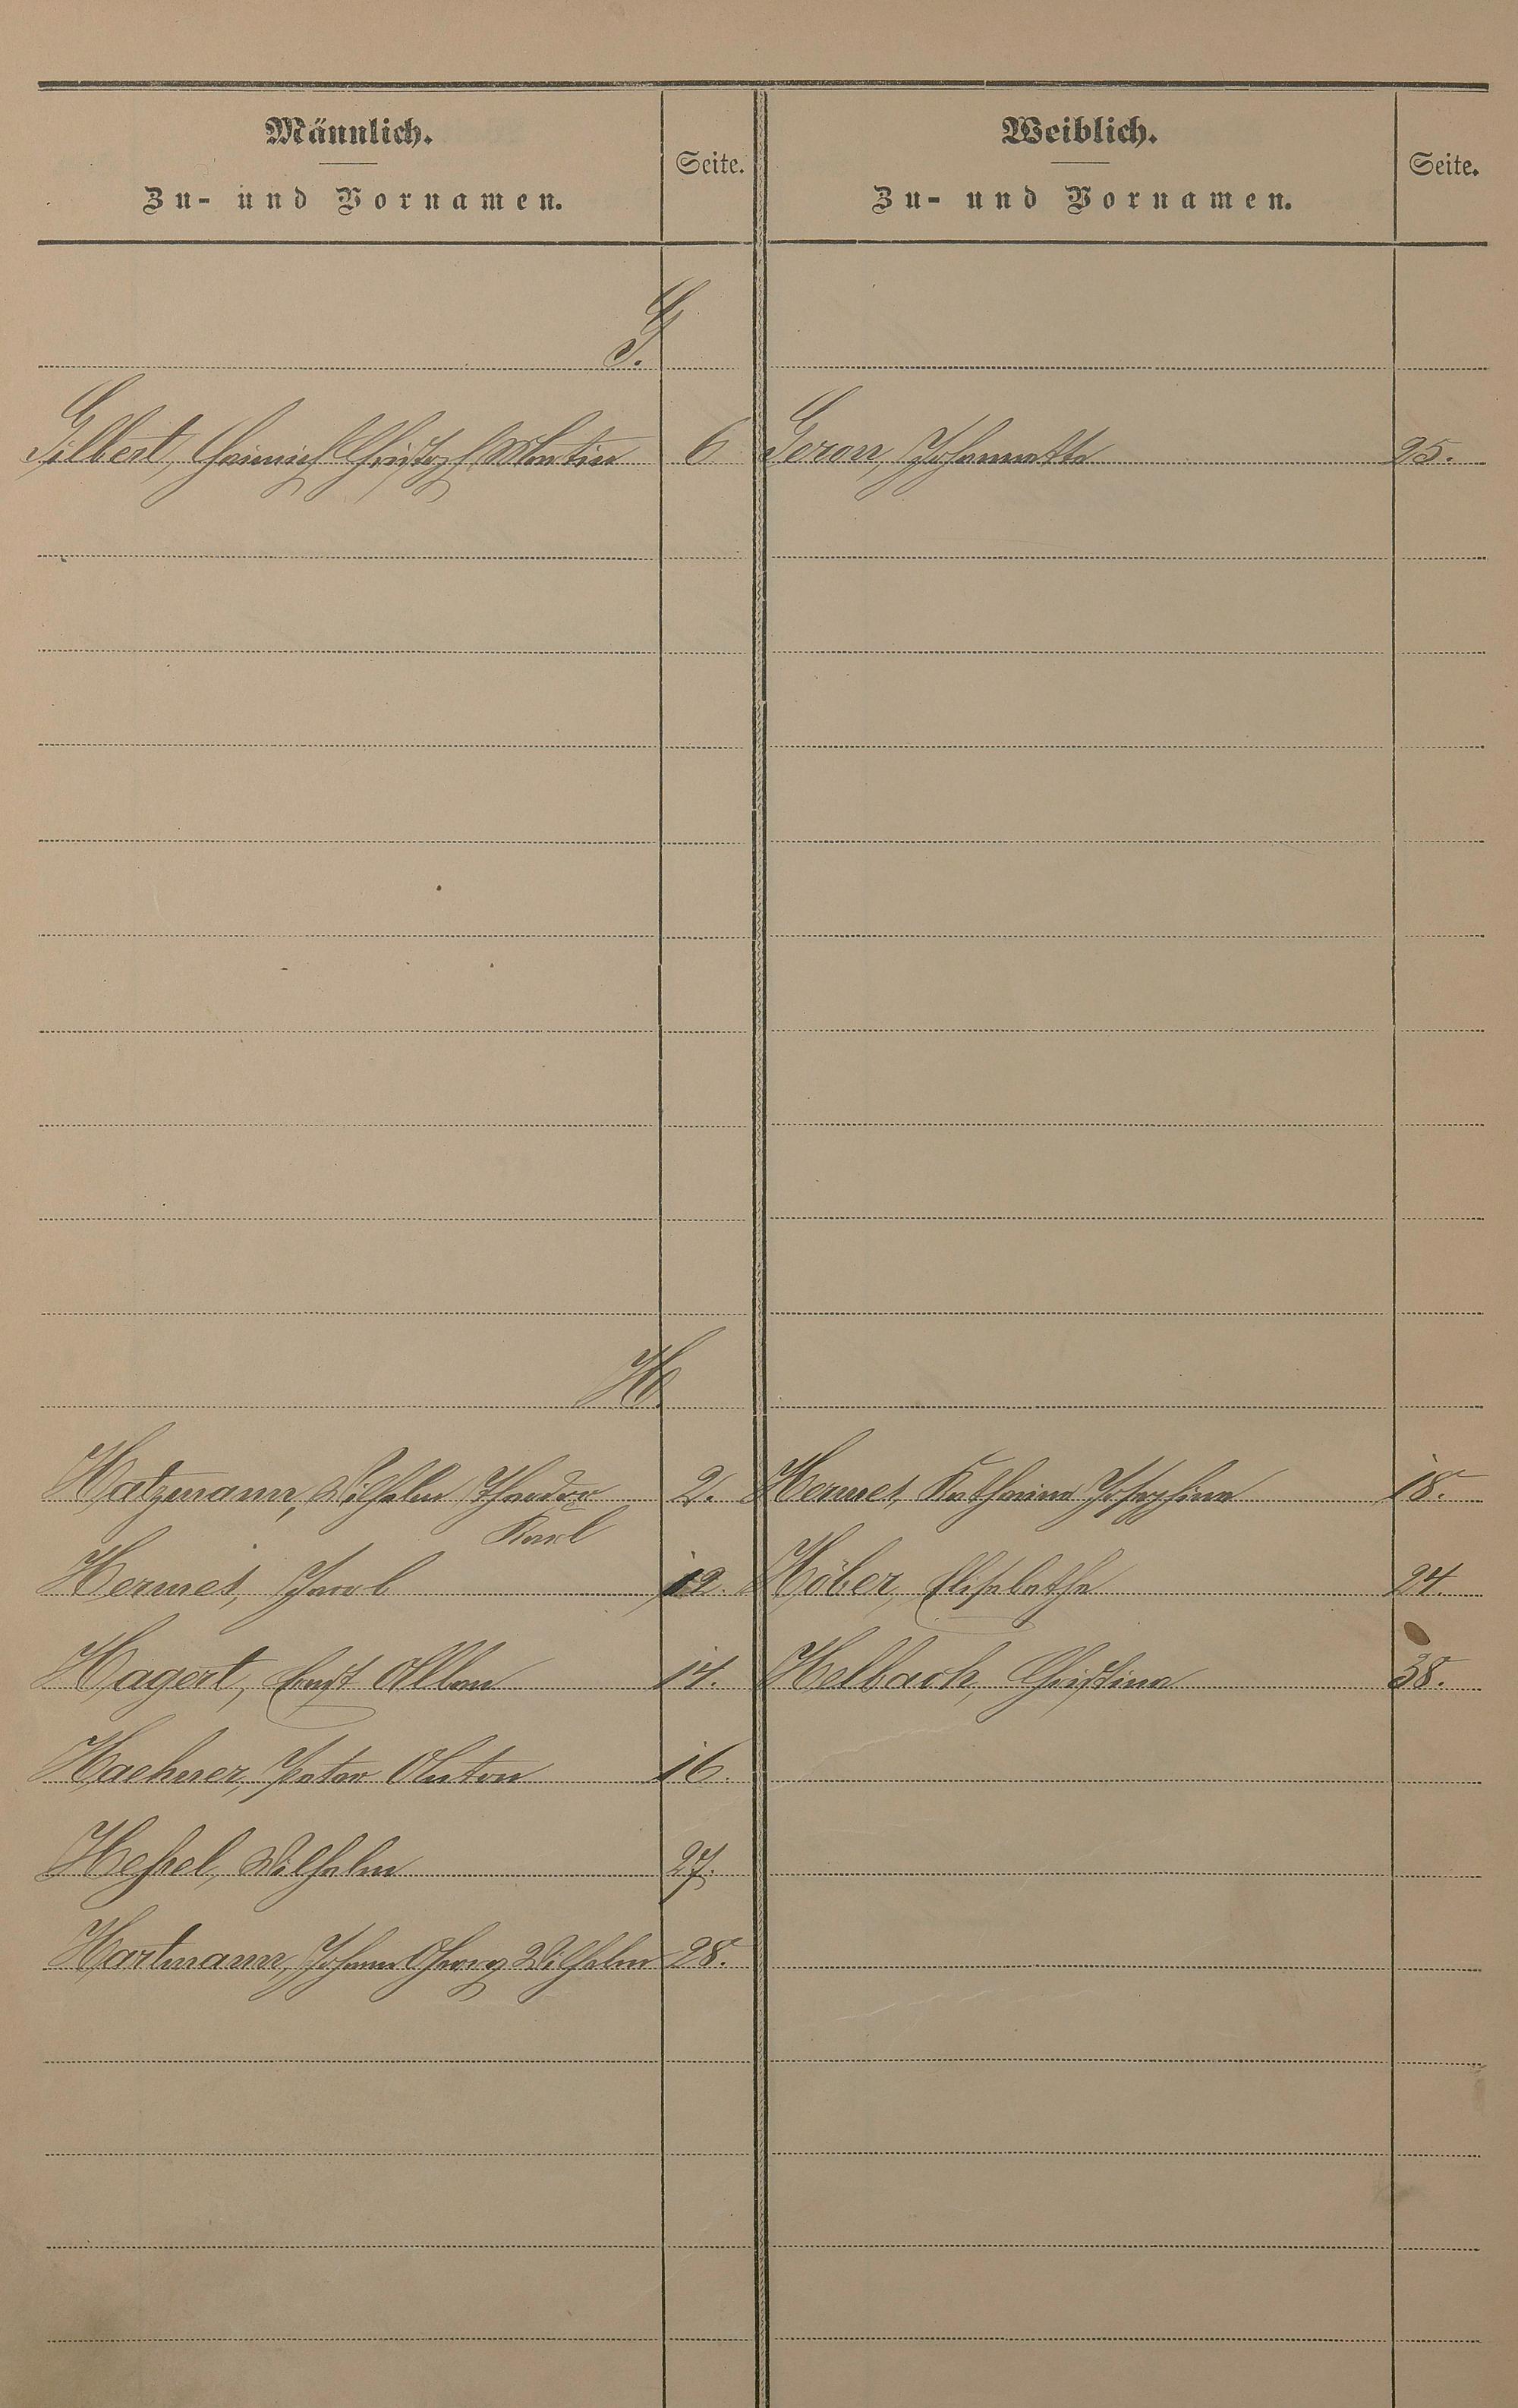 Männlich.
Zu- und Vornamen.
Seite.
Weiblich.
Zu- und Vornamen.
Seite.
G.
Gilbert, Heinrich Christoph Martin 6 Geron, Johannette 25.
H.
Hatzmann, Wilhelm Theodor 2. Hermes, Katharina Josephina 18.
Karl
Hermes, Jacob 12. Höber, Elisabetha 24.
Hagert, Ernst Alban 14. Helbach, Christina 38.
Haehner, Peter Anton 16.
Heßel, Wilhelm 27.
Hartmann, Johann Georg Wilhelm 28.